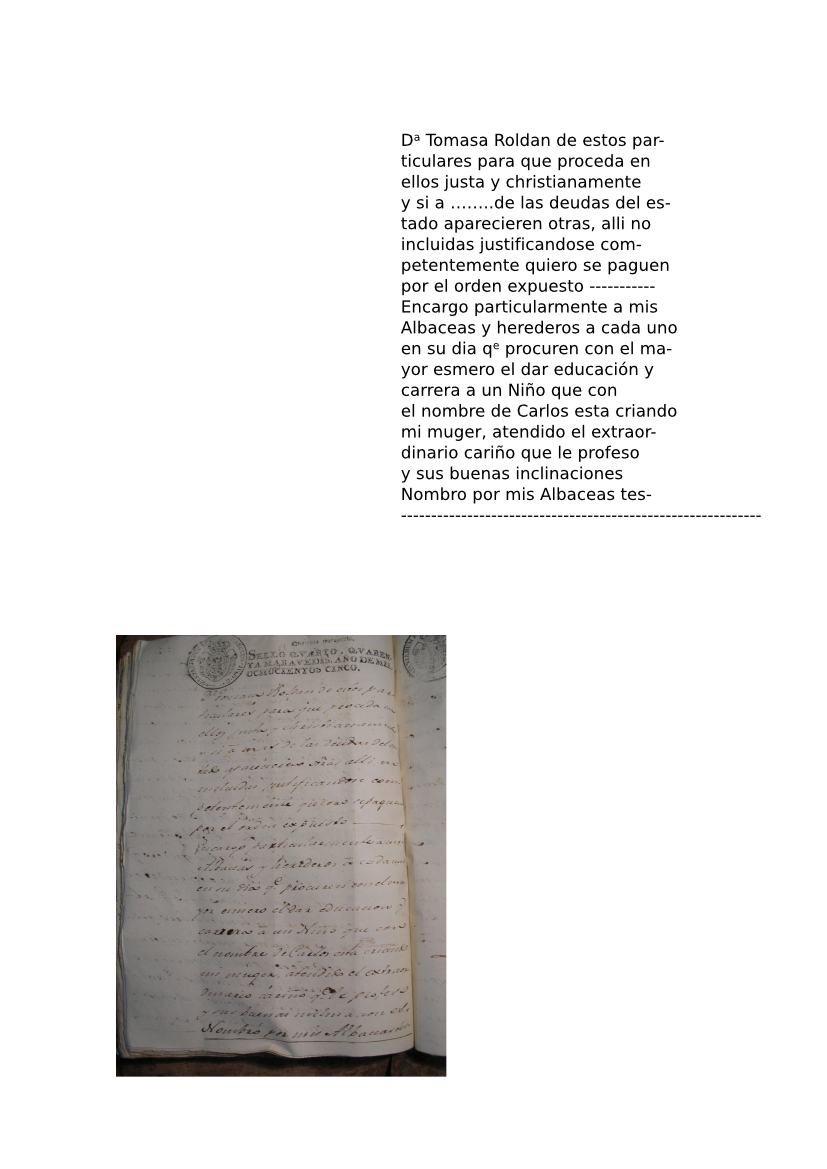 Dª Tomasa Roldan de estos par-
ticulares para que proceda en
ellos justa y christianamente
y si a ........de las deudas del es-
tado aparecieren otras, alli no
incluidas justificandose com-
petentemente quiero se paguen
por el orden expuesto -----------
Encargo particularmente a mis
Albaceas y herederos a cada uno
en su dia qᵉ procuren con el ma-
yor esmero el dar educación y
carrera a un Niño que con
el nombre de Carlos esta criando
mi muger, atendido el extraor-
dinario cariño que le profeso
y sus buenas inclinaciones
Nombro por mis Albaceas tes-
------------------------------------------------------------
SELLO QVARTO, QVAREN-
TA MARAVEDIS, AÑO DE MIL
OCHOCIENTOS CINCO.
Tomasa Roldan de estos par
ticulares para que proceda en
ellos justa y christianamente
y si a de las deudas del
tado aparecieren otras alli no
incluidas justificandose com
petentemente quiero se paguen
por el orden expuesto
Encargo particularmente a mis
Albaceas y herederos a cada uno
en su dia qᵉ procuren con el ma
yor esmero el dar educacion y
carrera a un Niño que con
el nombre de Carlos está criando
mi muger, atendido el extraor
dinario cariño qᵉ le profeso
y sus buenas inclinaciones
Nombro por mis Albaceas